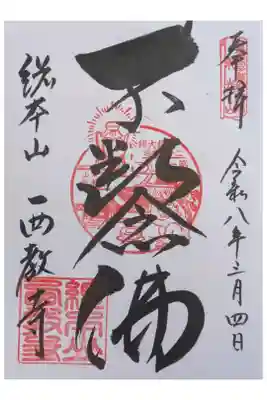 奉拝
令和八年三月四日
不断念佛
総本山
西教寺